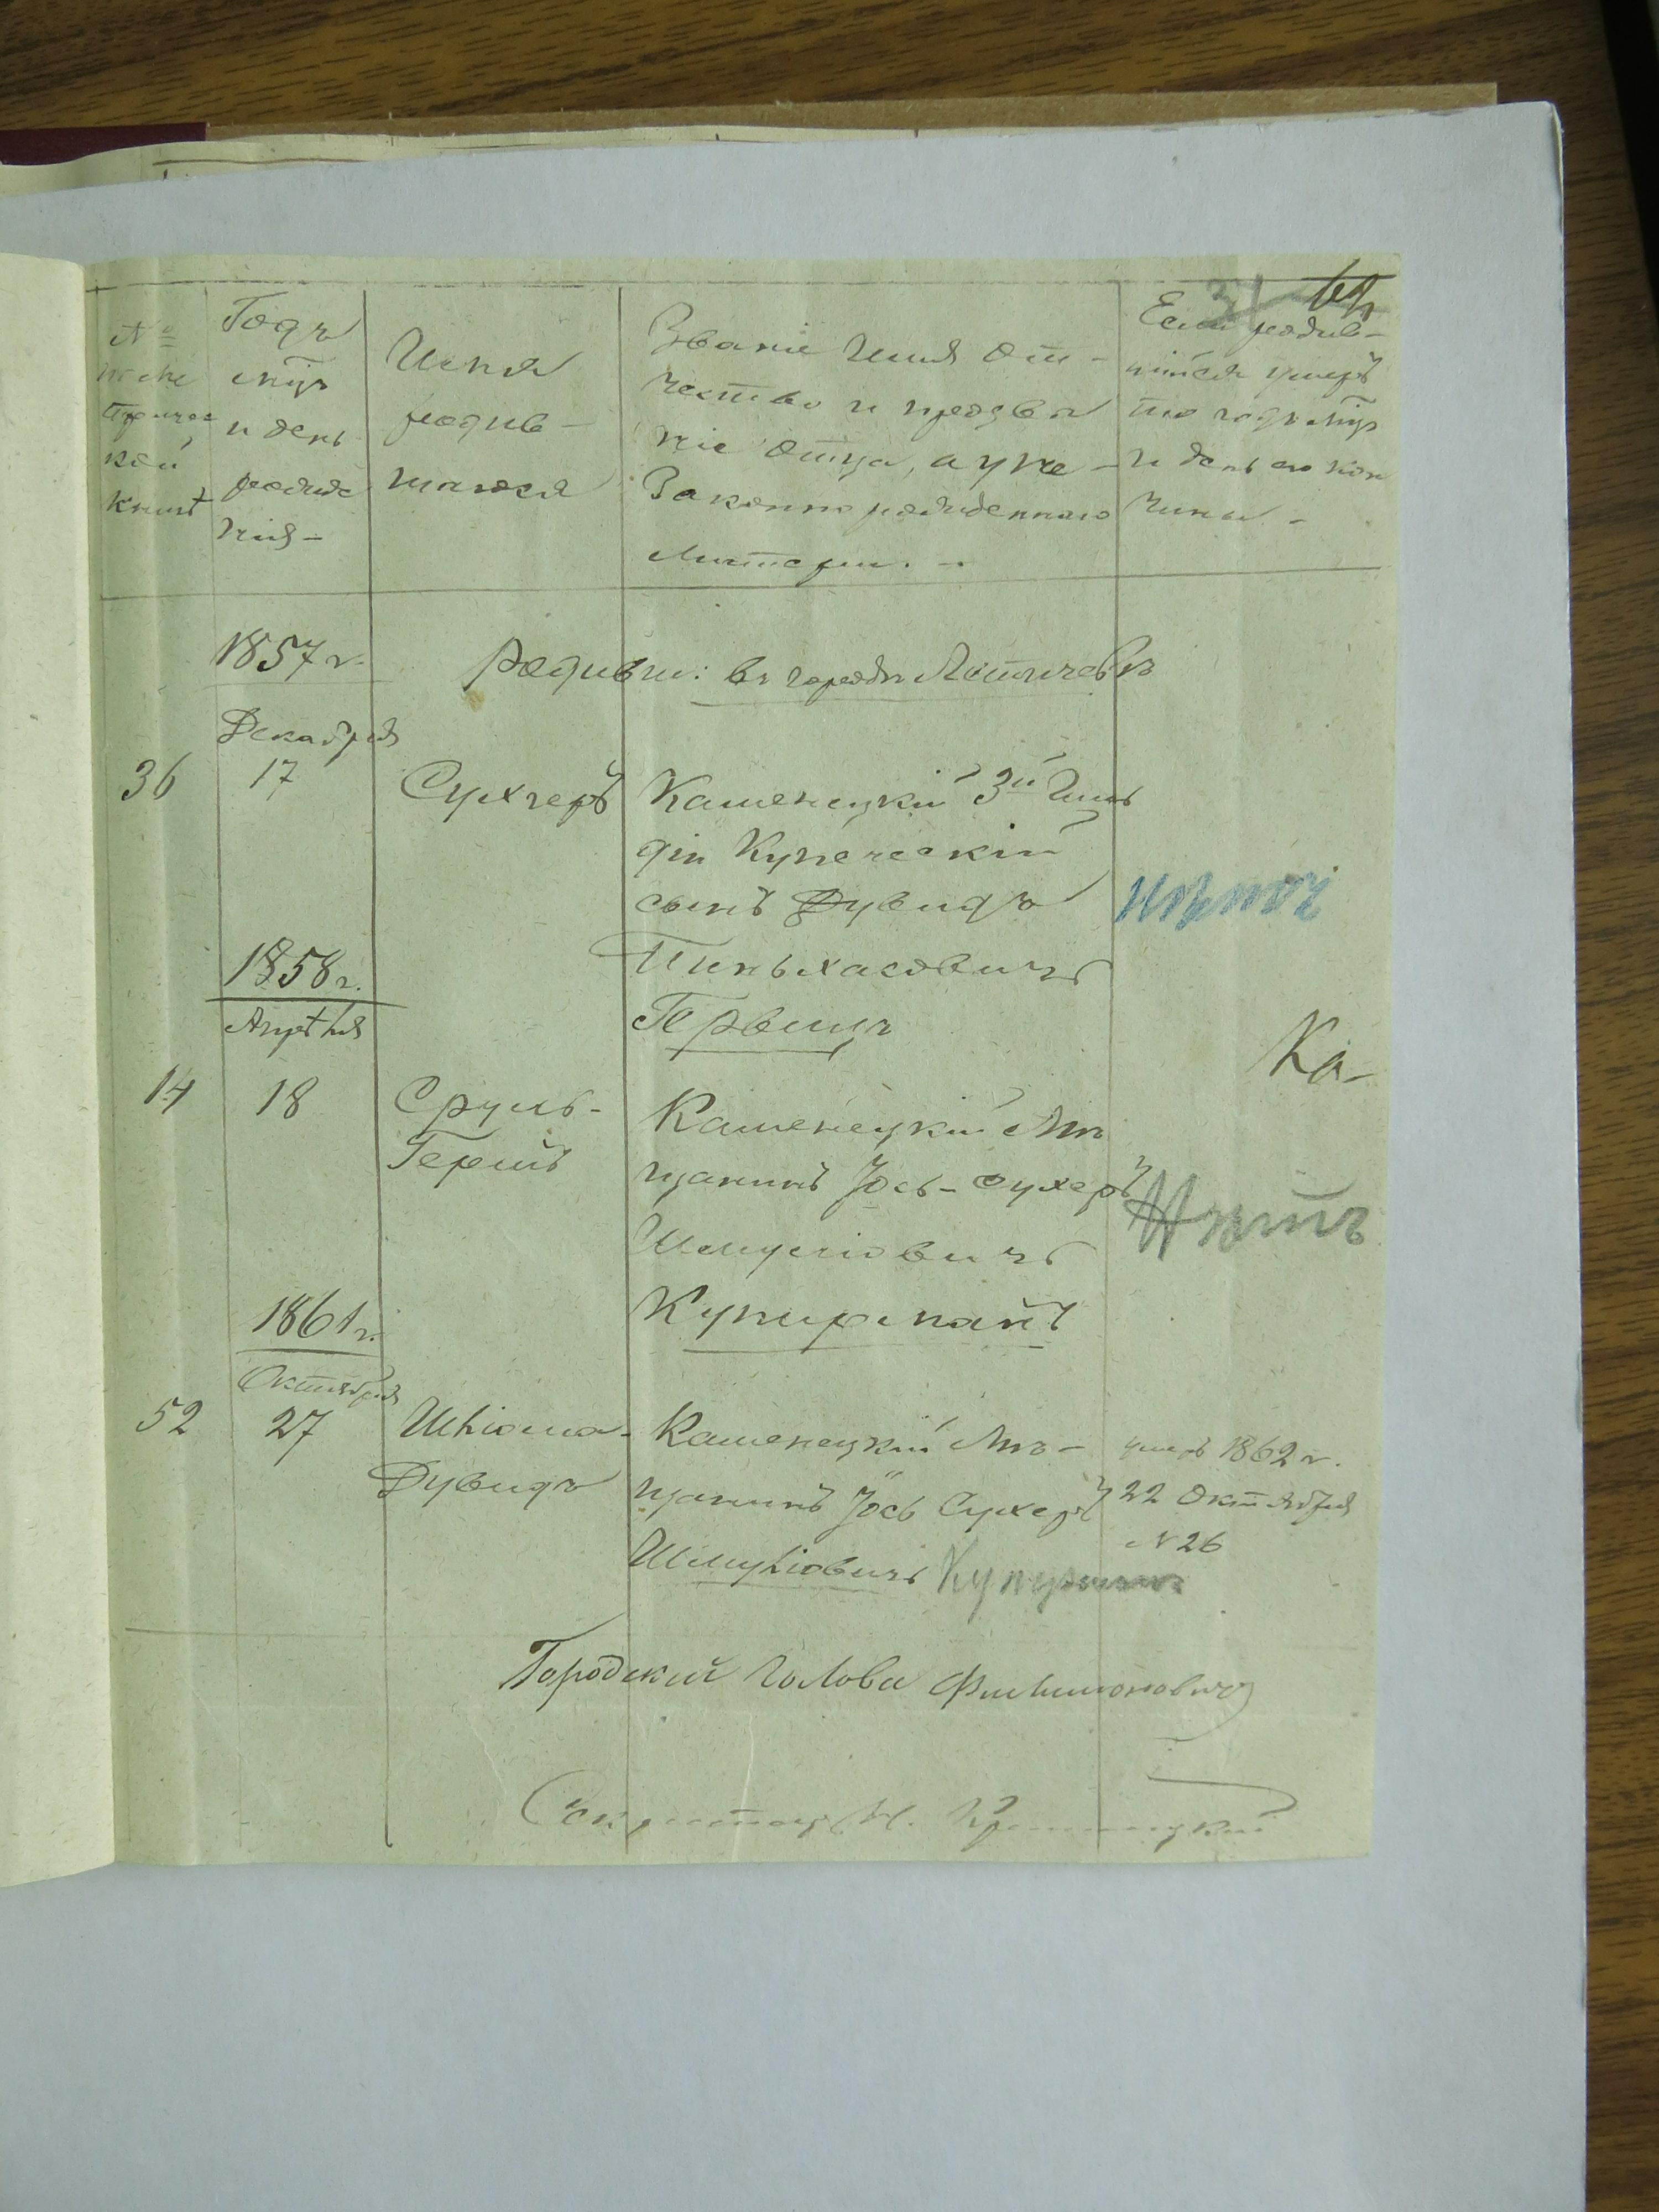 №
метри
ческой
книгѣ
Годъ
мцъ
и день
рожде
нія –
Имя
родив –
шагося
Званіе Имя От –
чество и прозва
ніе Отца, а у не –
законно рожденнаго
Матери. –
Если родив –
шійся умеръ
то годъ мцъ
и день его кон
чины –
1857 г. Родивш: въ городѣ Летичевѣ
Декабря
36 17 Сухеръ Каменецкій 3й Гиль
діи Купеческій
сынъ Дувидъ
Пиньхасовичъ
Гервицъ
нѣтъ
1858 г.
Апрѣля
Ка-
14 18 Сруль-
Гершъ
Каменецкій Мѣ
щанинъ Іось-Сухеръ
Шмуліовичъ
Куперманъ
Нѣтъ
1861 г.
Октября
52 27 Шліома-
Дувидъ
Каменецкій Мѣ –
щанинъ Іось Сухеръ
Шмуліовичъ
умеръ 1862 г.
22 Октября
№ 26
Городской Голова Филимоновичъ
Секретарь